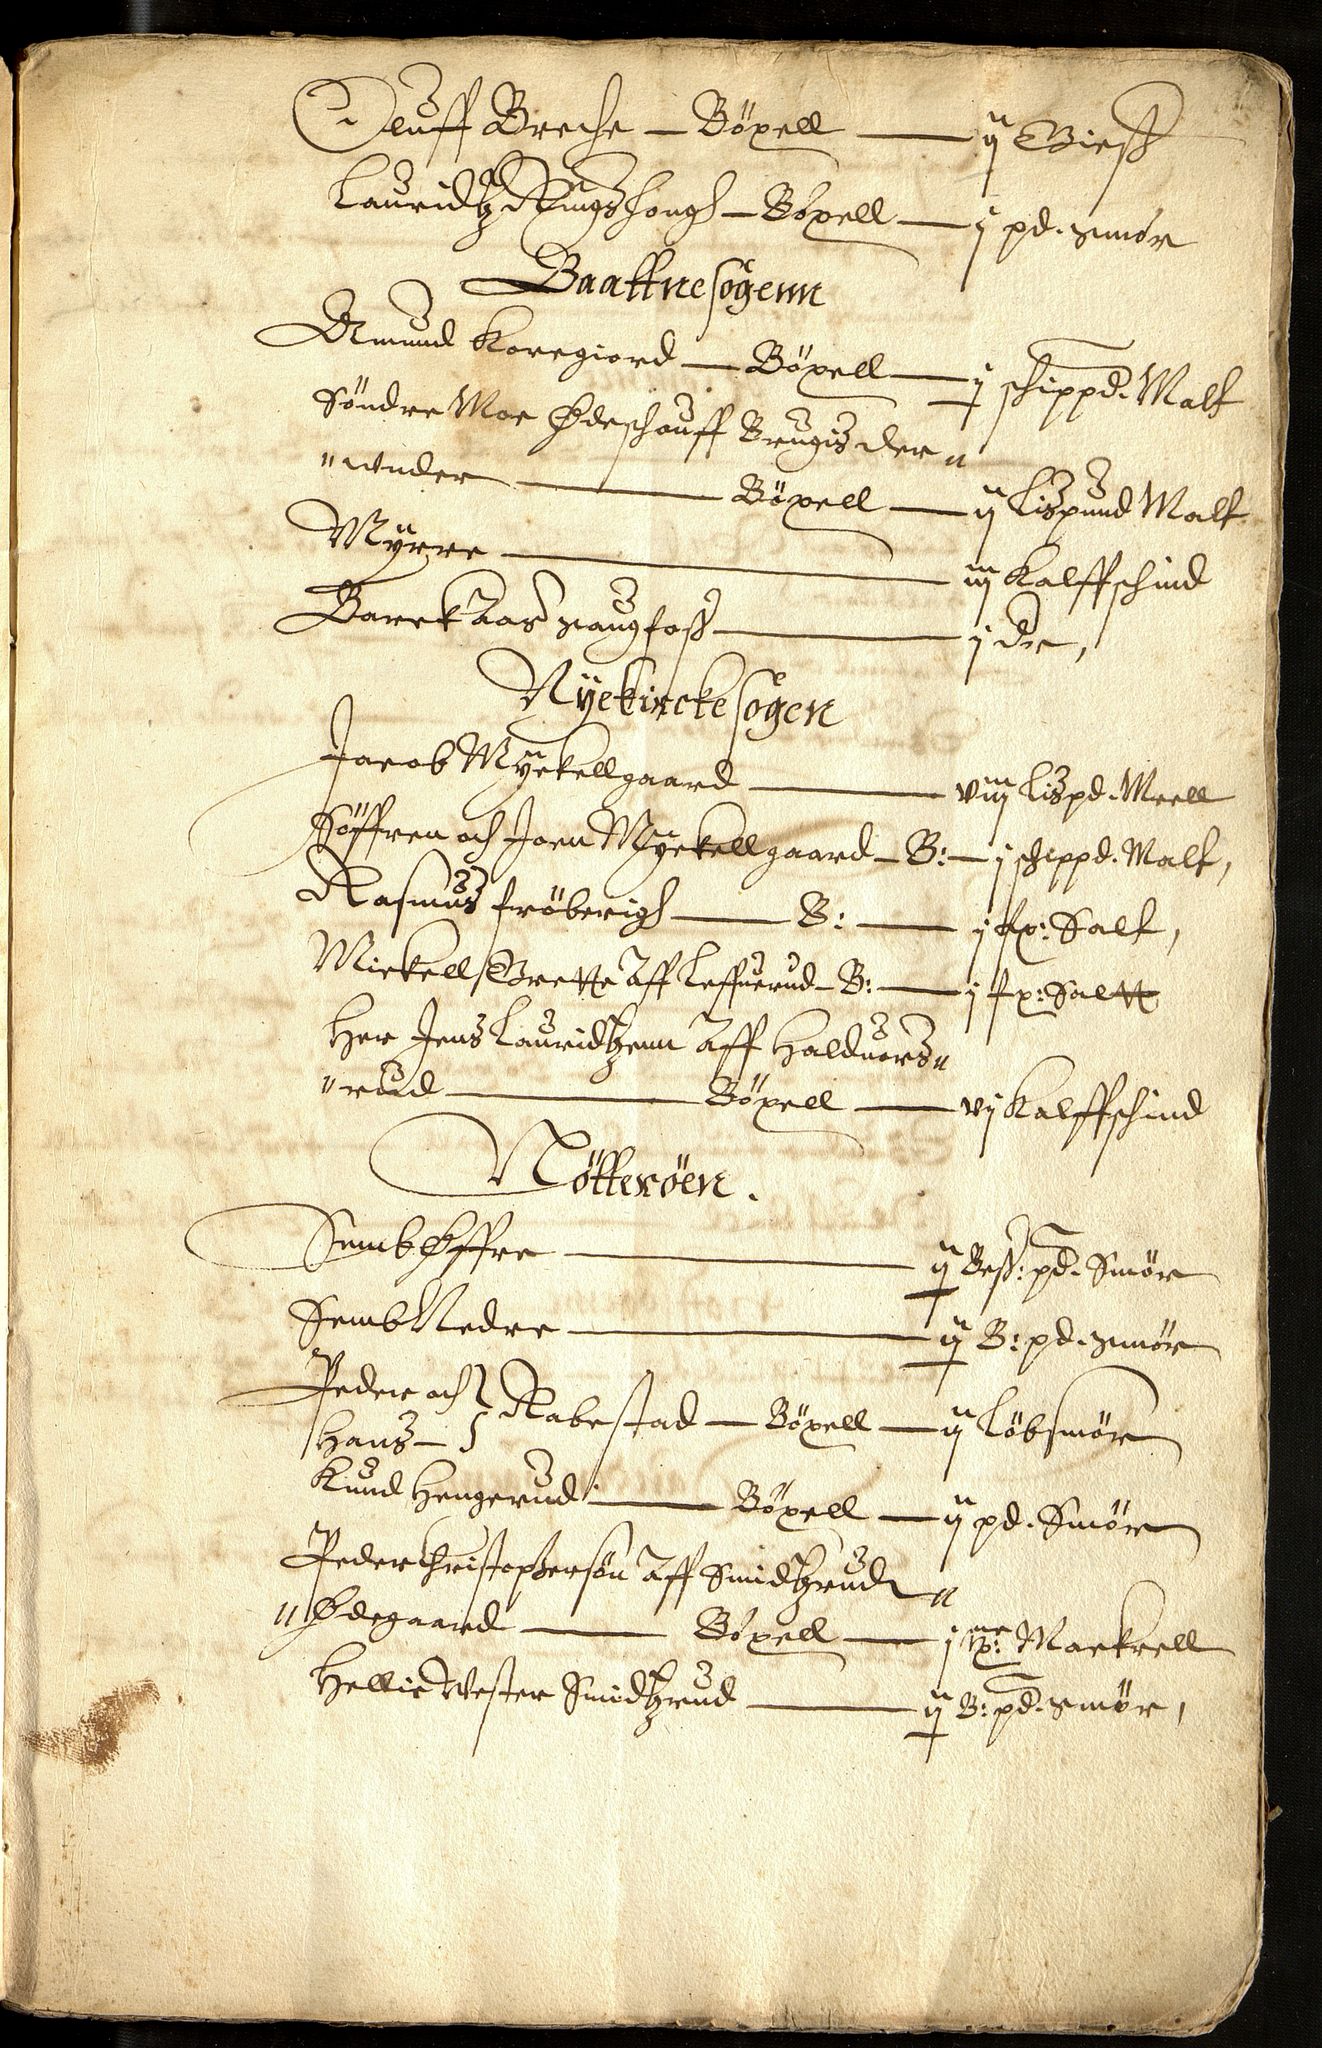 Oluff Breche – Böxell — ij Giess
Lauridtz Ringshough – Böxell — j pd. smör
Baattnesögenn
Amund Korregiord — Böxell — j schippd. Malt
Söndre Moe Ødeschouff Brugis der „
„ wnder — Böxell — ij Lispund Malt
Myrre — iiij Kalffschind
Barckaas saugfoss — j dr,
Nyekirckesogen
Jacob Myckellgaard — viij Lispd. Meell
Söffren och Joen Myckellgaard – B: – j schippd. Malt,
Rasmus fröberigh — B: — j tx: Salt,
Mickell Grette aff Leffuerud – B: — j tx: Saltt
Her Jens Lauridtzenn aff Halduors„
„rud — Böxell — vj Kalffschind
Nötteröen.
Semb Øffre — ij Bess: pd. Smör
Semb Nedre — ij B: pd. smör
Peder och } Rabestad — Böxell — ij Löbsmör
Hans –
Knud Hengerud — Böxell — ij pd. Smör
Peder Christophersön aff Smidtzrud „
„ Ødegaard — Böxell — j Mackrell
Hellie Vester Smidtzrud — ij B: pd. smör,